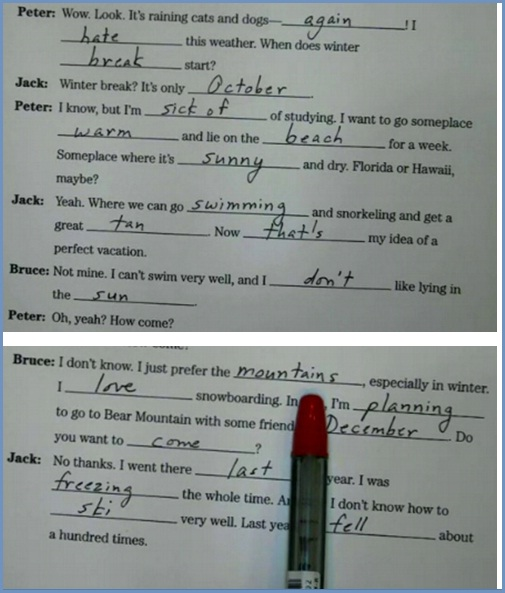 Peter: Wow. Look. It's raining cats and dogs—again! I
hate this weather. When does winter
break start?
Jack: Winter break? It's only October
Peter: I know, but I'm sick of of studying. I want to go someplace
warm and lie on the beach for a week.
Someplace where it's sunny and dry. Florida or Hawaii,
maybe?
Jack: Yeah. Where we can go swimming and snorkeling and get a
great tan. Now that's my idea of a
perfect vacation.
Bruce: Not mine. I can't swim very well, and I don't like lying in
the sun
Peter: Oh, yeah? How come?
Bruce: I don't know. I just prefer the mountains, especially in winter.
I love snowboarding. In I'm planning
to go to Bear Mountain with some friend December Do
you want to come?
Jack: No thanks. I went there last year. I was
freezing the whole time. I don't know how to
ski very well. Last fell about
a hundred times.